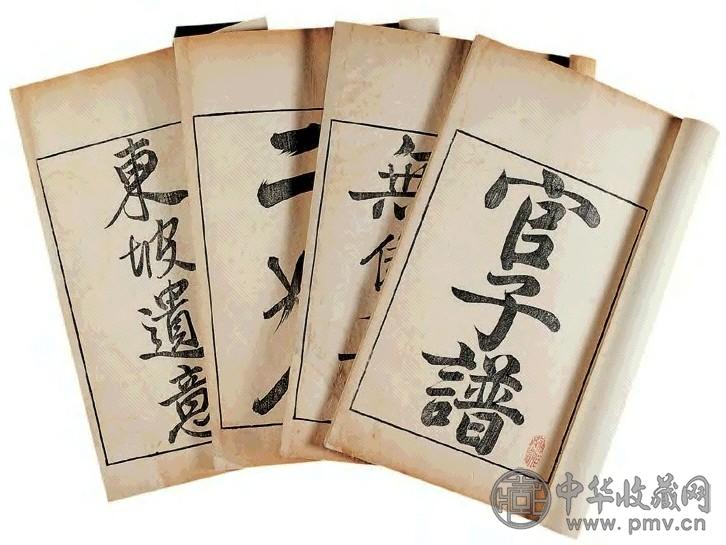 官子譜
無
二
東坡遺意
中华收藏网
www.pmv.cn